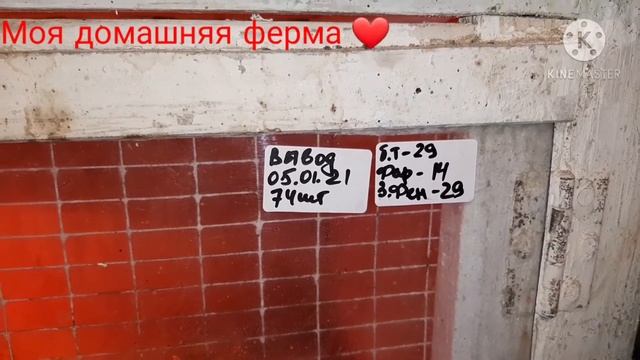 Моя домашняя ферма ❤
KINEMASTER
Вывод
05.01.21
74шт
Т.Т-29
Фар-14
З.Фен-29